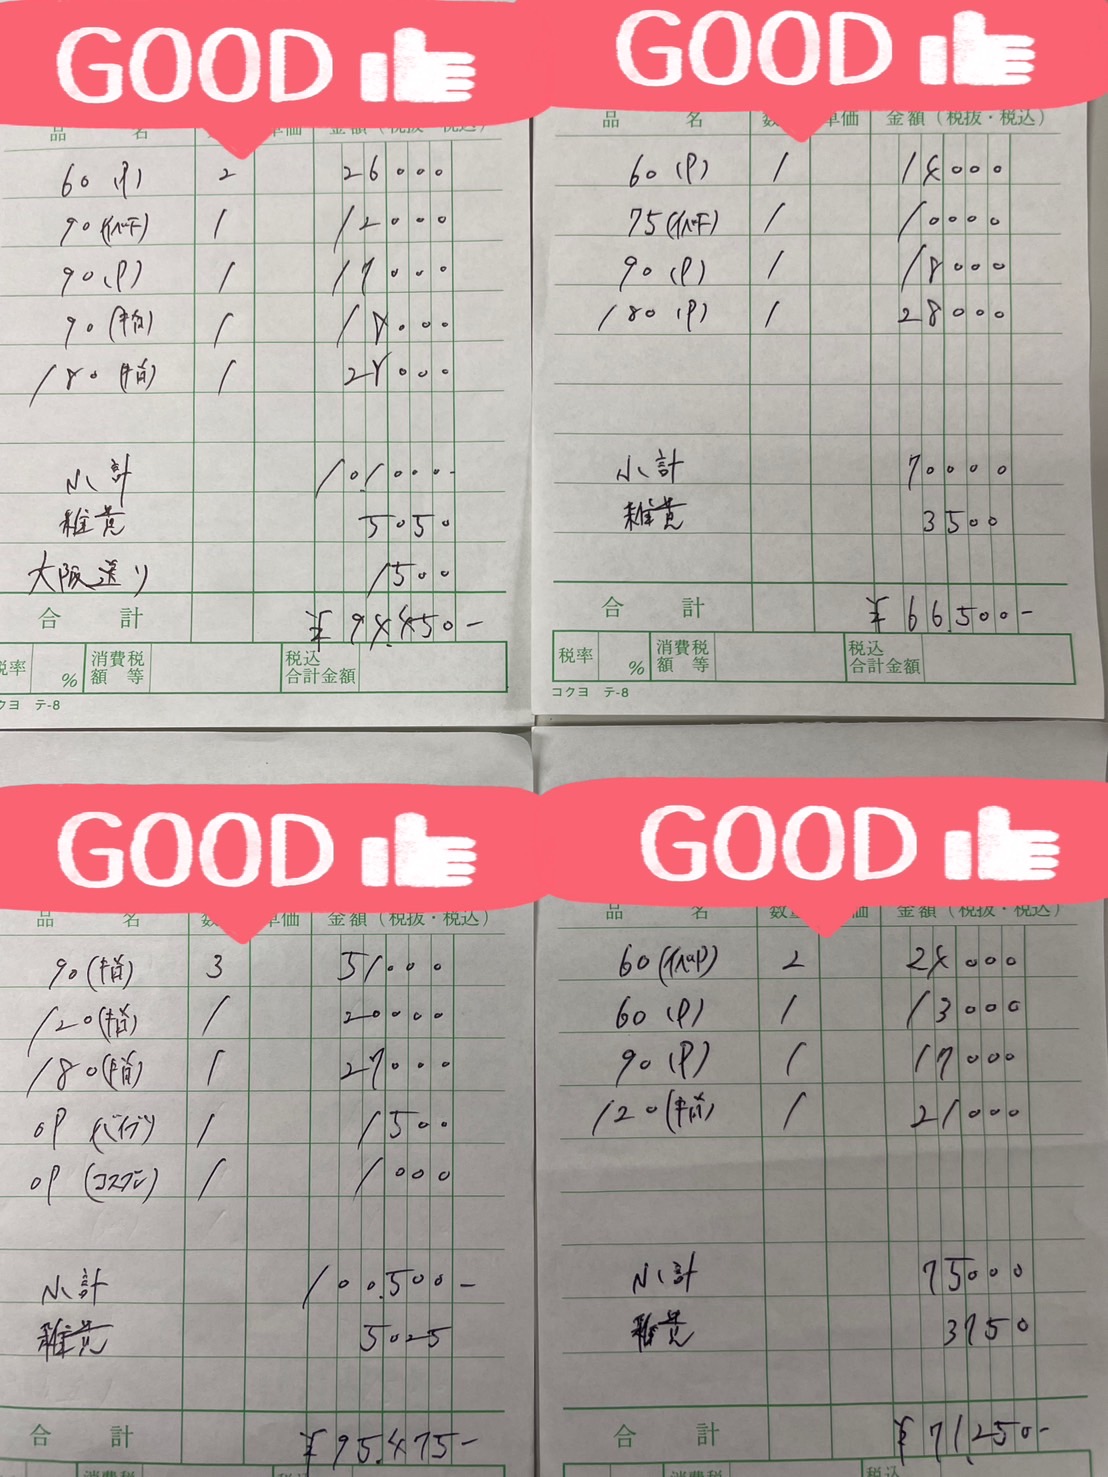 GOOD
品 名 単価 金額（税抜・税込）
60 (P) 2 26000
90 (イベT) 1 12000
90 (P) 1 17000
90 (本指) 1 18000
180 (本指) 1 28000
小計 101,000-
雑費 5050
大阪送り 1500
合 計 ¥94,450-
税率 % 消費税額等 税込合計金額
コクヨ テ-8
GOOD
品 名 数 単価 金額（税抜・税込）
60 (P) 1 14000
75 (イベT) 1 10000
90 (P) 1 18000
180 (P) 1 28000
小計 70000
雑費 3500
合 計 ¥66,500-
税率 % 消費税額等 税込合計金額
コクヨ テ-8
GOOD
品 名 数 単価 金額（税抜・税込）
90 (本指) 3 51000
120 (本指) 1 20000
180 (本指) 1 27000
OP (バイブ) 1 1500
OP (コスプレ) 1 1000
小計 100,500-
雑費 5025
合 計 ¥95,475-
消費税 税込
GOOD
品 名 数量 価 金額（税抜・税込）
60 (イベP) 2 24000
60 (P) 1 13000
90 (P) 1 17000
120 (本指) 1 21000
小計 75000
雑費 3750
合 計 ¥71,250-
消費税 税込